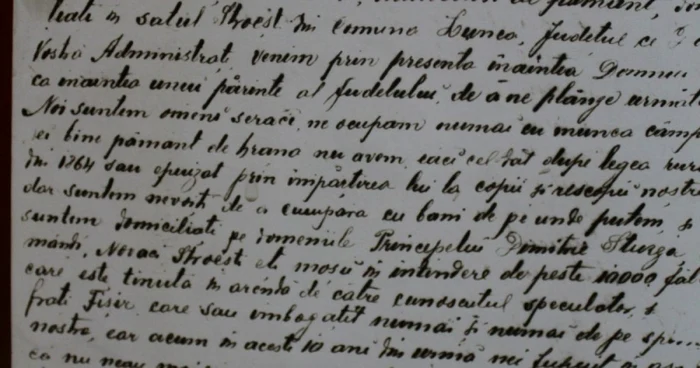 liati in satul Stroest din comuna Lunca, Judetul ce
Vostră Administrati, venim prin presenta inaintea Domnu
ca inaintea unui părinte al Judetului, de a ne plânge următ
Noi suntem omeni seraci, ne ocupam numai cu munca câmp
ei bine pămant de hrana nu avem, caci cel dat dupe legea rur
din 1864 sau epuizat prin impărtirea lui la copii si rescopii nostri
dar suntem nevoiti de a cumpăra cu bani de pe unde putem, si
suntem domiciliati pe domeniile Principelui Dimitrie Sturza
Stroest et mosii in intindere de peste 10000 făl
care este tinuta in arendă de catre cunoscutul speculator, s
frati Fisir care sau imbogatit numai si numai de pe
nostră, ear acum in acesti 10 ani din urmă nei
ca nu